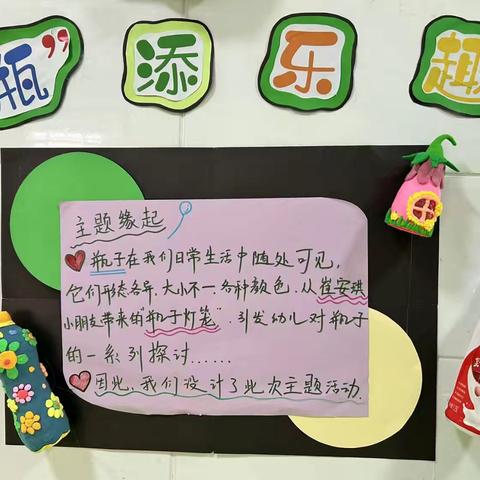 瓶”添乐趣
主题缘起
瓶子在我们日常生活中随处可见,
它们形态各异、大小不一、各种颜色.从崔安琪
小朋友带来的瓶子灯笼”,引发幼儿对瓶子
的一系列探讨……
因此、我们设计了此次主题活动.